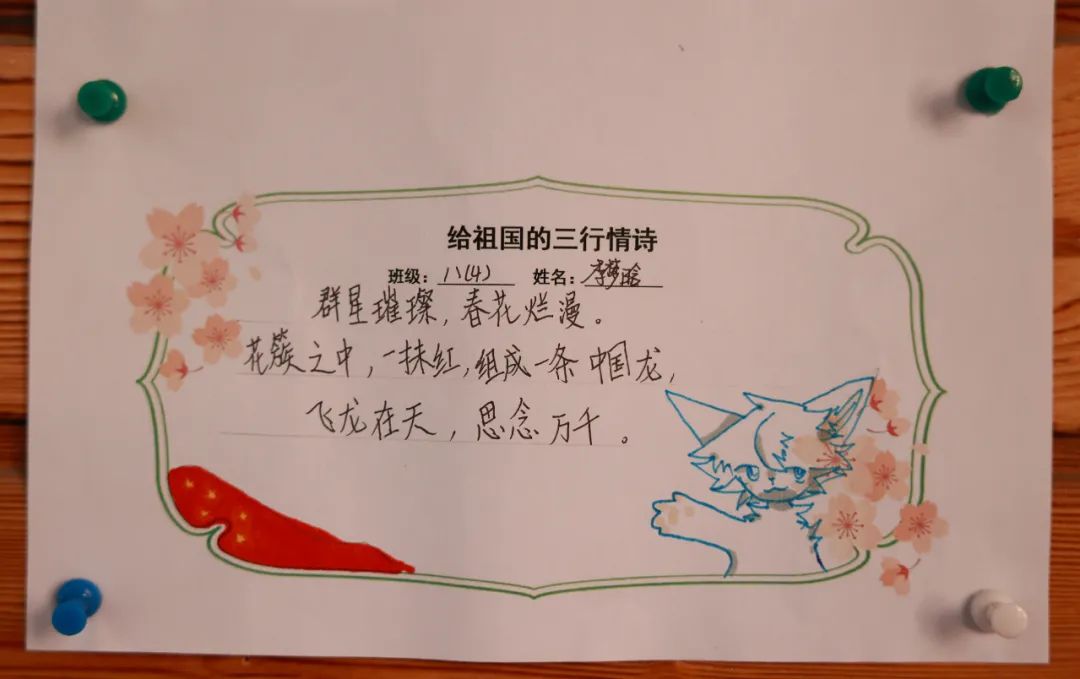 给祖国的三行情诗
班级：八(4) 姓名：李梦晗
群星璀璨，春花烂漫。
花簇之中，一抹红，组成一条中国龙，
飞龙在天，思念万千。